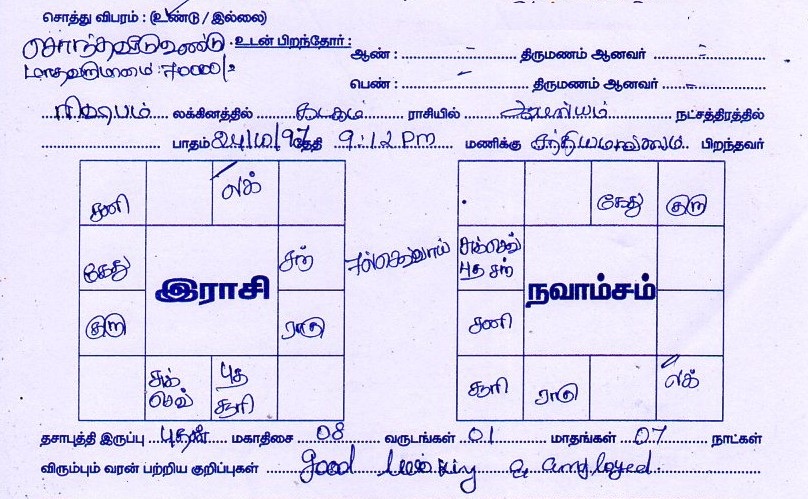 சொத்து விபரம் : (உண்டு / இல்லை)
சொந்தவீடு உண்டு . உடன் பிறந்தோர் : ஆண் : – திருமணம் ஆனவர் –
மாதவருமானம் : 70000/- பெண் : – திருமணம் ஆனவர் –
ரிஷபம் லக்கினத்தில் கடகம் ராசியில் ஆயில்யம் நட்சத்திரத்தில்
பாதம் 24/10/97 தேதி 9:12 Pm மணிக்கு சத்தியமங்கலம் பிறந்தவர்
சனி லக்
கேது சந்
இராசி
குரு ராகு
சுக் செவ் புத சூரி
கேது குரு
சுக் செவ் புத சந்
நவாம்சம்
சனி
சூரி ராகு லக்
தசாபுத்தி இருப்பு புதன் மகாதிசை 08 வருடங்கள் 01 மாதங்கள் 07 நாட்கள்
விரும்பும் வரன் பற்றிய குறிப்புகள் good looking &